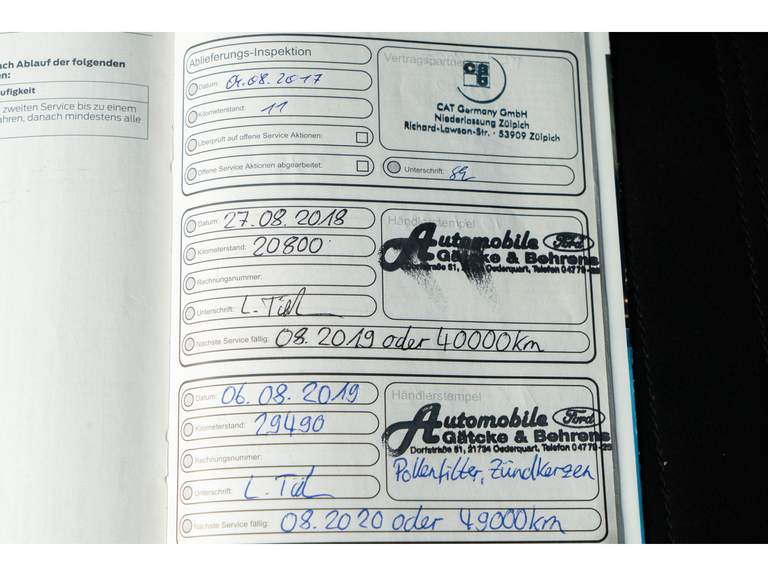 ach Ablauf der folgenden
en:
ufigkeit
zweiten Service bis zu einem
ahren, danach mindestens alle
Ablieferungs-Inspektion
Datum: 01.08.2017
Kilometerstand: 11
Überprüft auf offene Service Aktionen:
Offene Service Aktionen abgearbeitet:
Vertragspartne
CAT Germany GmbH
Niederlassung Zülpich
Richard-Lawson-Str. · 53909 Zülpich
Unterschrift:
Datum: 27.08.2018
Kilometerstand: 20800
Rechnungsnummer:
Unterschrift: L. Tid
Nächste Service fällig: 08.2019 oder 40000km
Händlerstempel
Automobile Ford
Gätcke & Behrens
Oederquart, Telefon 04779-25
Datum: 06.08.2019
Kilometerstand: 29490
Rechnungsnummer:
Unterschrift: L. Tid
Nächste Service fällig: 08.2020 oder 49000km
Händlerstempel
Automobile Ford
Gätcke & Behrens
Dorfstraße 51, 21734 Oederquart, Telefon 04779-25
Pollenfilter, Zündkerzen